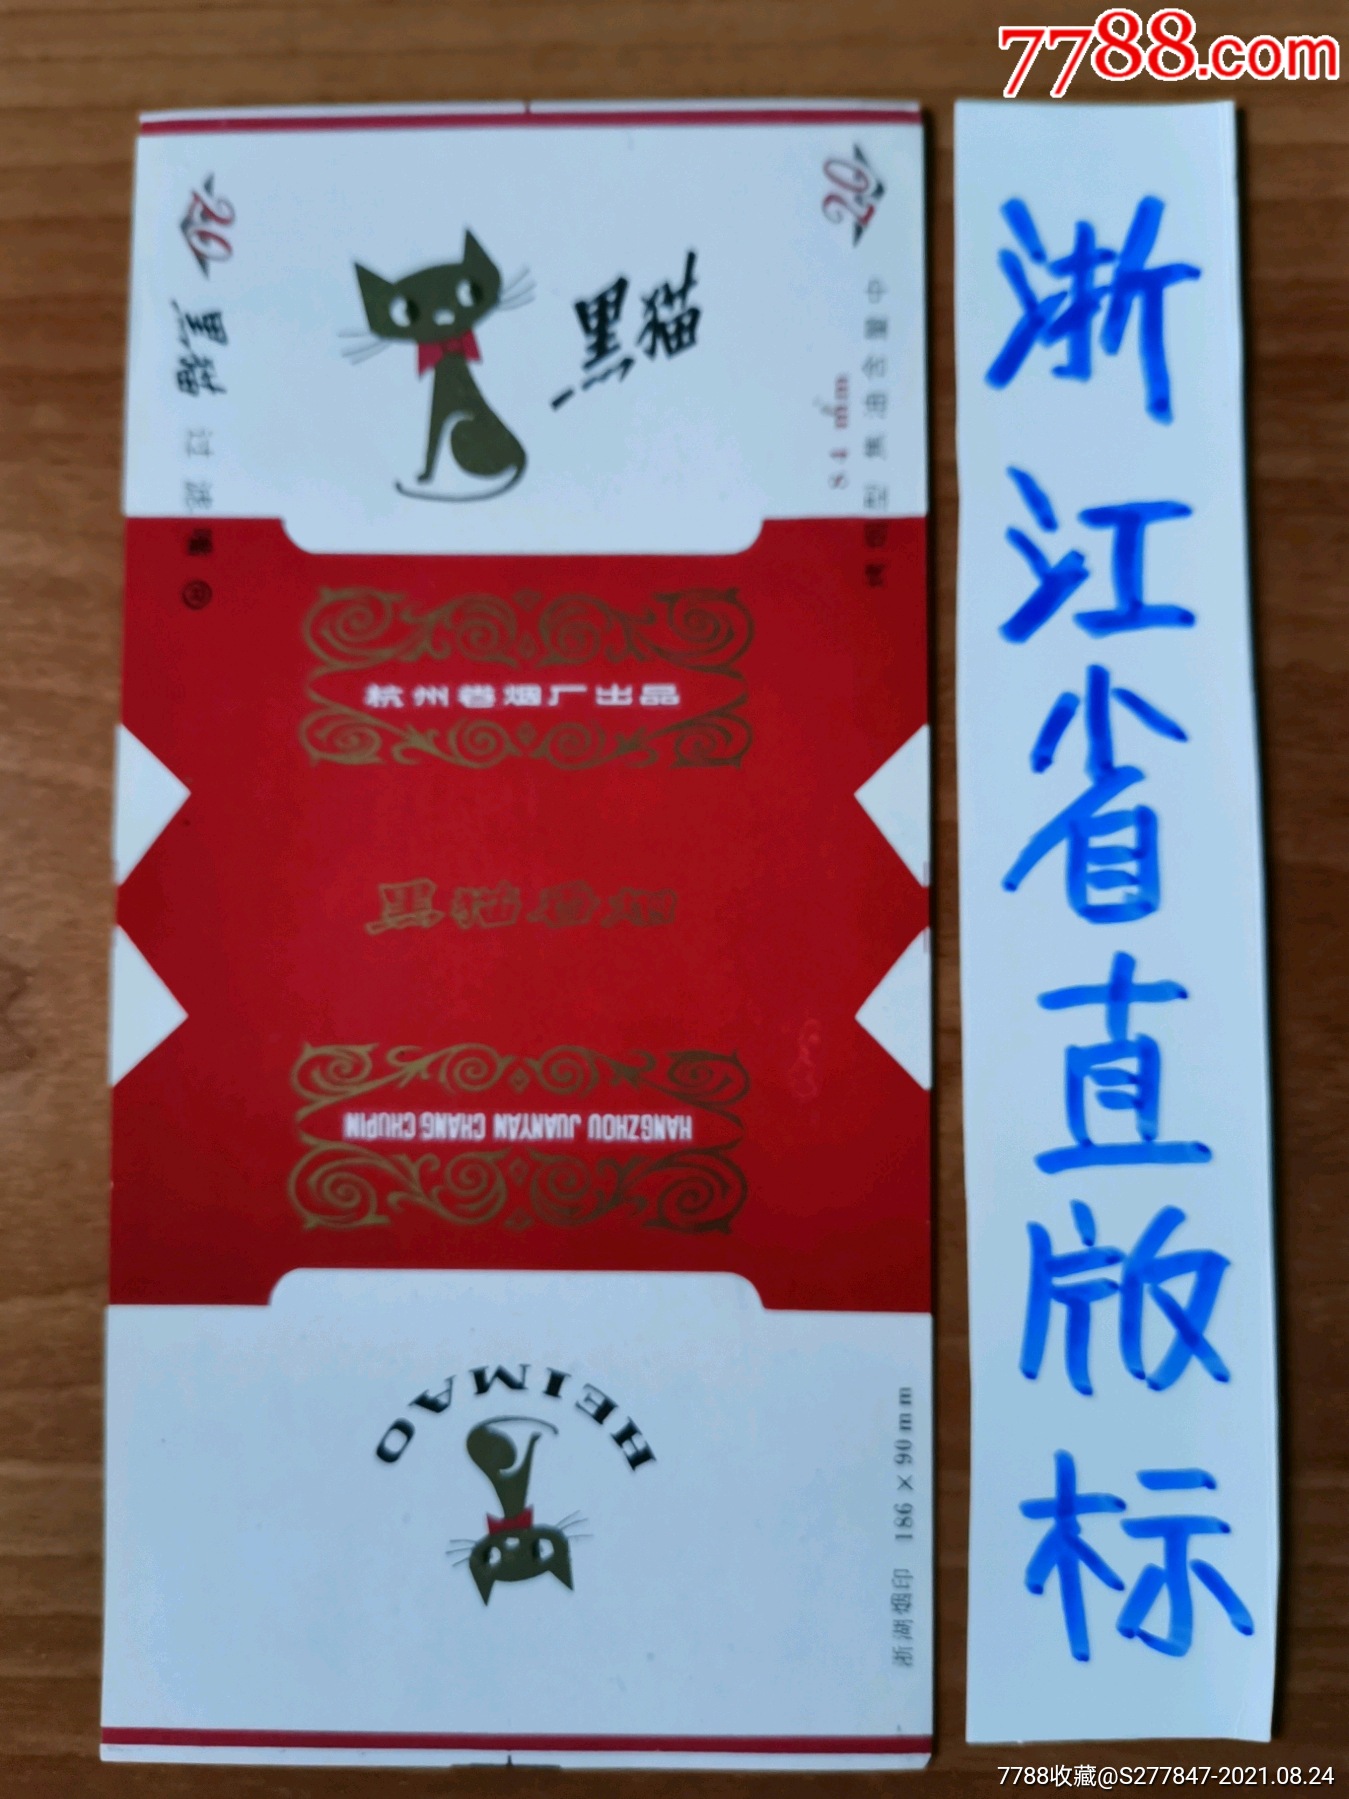 7788.com
20
黑猫
过滤嘴
黑猫
20
84 mm
烤烟型 焦油含量中
杭州卷烟厂出品
黑猫香烟
HANGZHOU JUANYAN CHANG CHUPIN
HEIMAO
浙湖烟印 186×90mm
浙江省直版标
7788收藏@S277847-2021.08.24